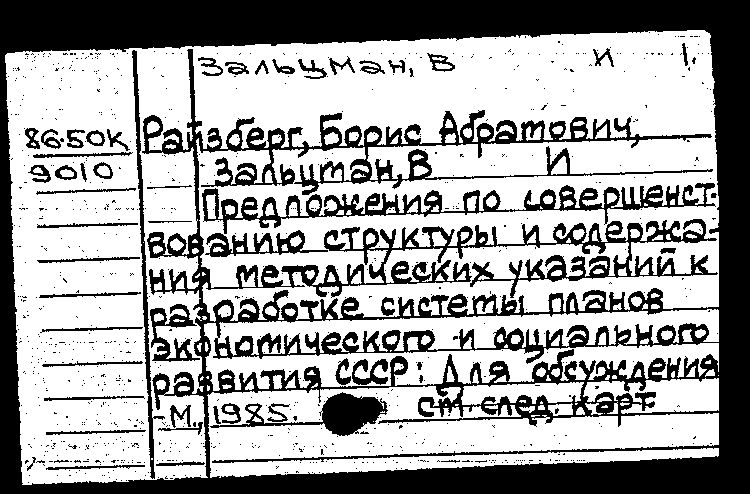 Зальцман, В И 1.
86-50К Райзберг, Борис Абрамович,
9010 Зальцман, В И
Предложения по совершенст-
вованию структуры и содержа-
ния методических указаний к
разработке системы планов
экономического и социального
развития СССР: Для обсуждения
М., 1985. см. след. карт.